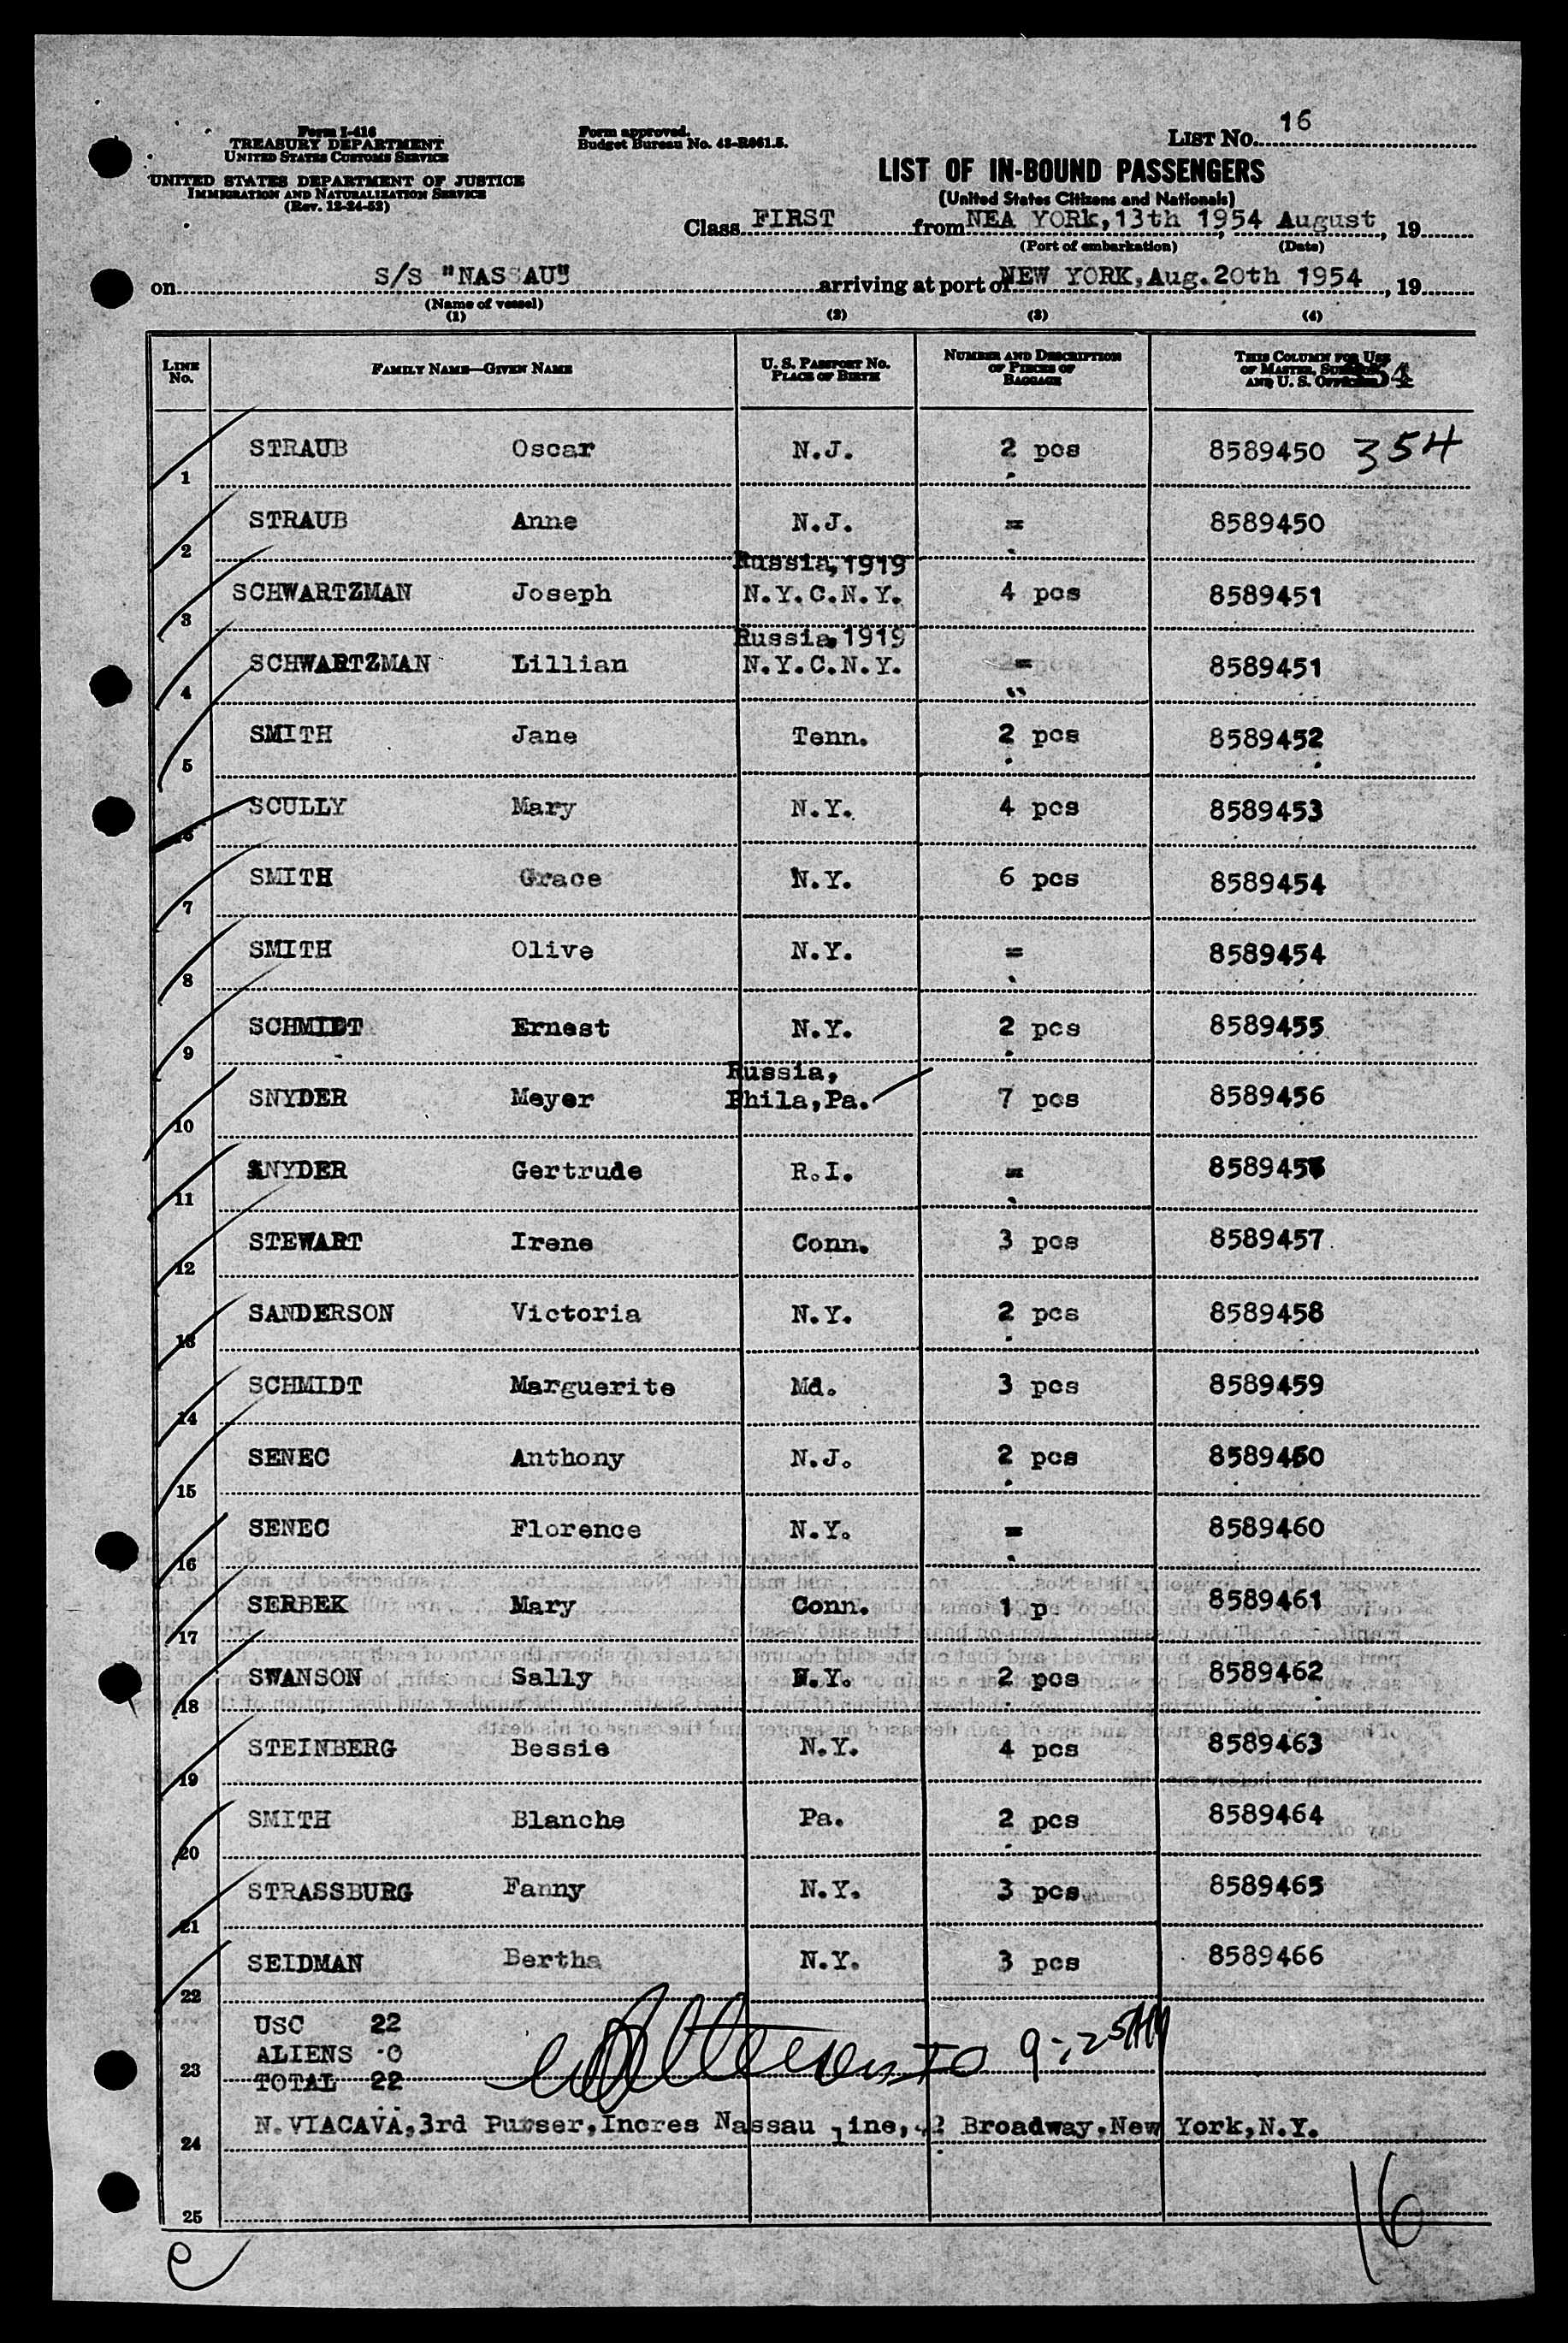 Form I-416
TREASURY DEPARTMENT
UNITED STATES CUSTOMS SERVICE
UNITED STATES DEPARTMENT OF JUSTICE
IMMIGRATION AND NATURALIZATION SERVICE
(Rev. 12-24-52)
Form approved.
Budget Bureau No. 43-R061.5.
LIST No. 16
LIST OF IN-BOUND PASSENGERS
(United States Citizens and Nationals)
Class FIRST from NEA YORk, 13th 1954 August, 19
(Port of embarkation) (Date)
on S/S "NASSAU" arriving at port of NEW YORK, Aug. 20th 1954, 19
(Name of vessel)
(1) (2) (3) (4)
LINE No. FAMILY NAME—GIVEN NAME U. S. PASSPORT No. PLACE OF BIRTH NUMBER AND DESCRIPTION OF PIECES OF BAGGAGE THIS COLUMN FOR USE OF MASTER, SURGEON, AND U. S. OFFICERS 354
1 STRAUB Oscar N.J. 2 pcs 8589450 354
2 STRAUB Anne N.J. = 8589450
Russia, 1919
3 SCHWARTZMAN Joseph N.Y.C.N.Y. 4 pcs 8589451
Russia, 1919
4 SCHWARTZMAN Lillian N.Y.C.N.Y. = 8589451
5 SMITH Jane Tenn. 2 pcs 8589452
6 SCULLY Mary N.Y. 4 pcs 8589453
7 SMITH Grace N.Y. 6 pcs 8589454
8 SMITH Olive N.Y. = 8589454
9 SCHMIDT Ernest N.Y. 2 pcs 8589455
Russia,
10 SNYDER Meyer Phila, Pa. 7 pcs 8589456
11 SNYDER Gertrude R.I. = 8589456
12 STEWART Irene Conn. 3 pcs 8589457
13 SANDERSON Victoria N.Y. 2 pcs 8589458
14 SCHMIDT Marguerite Md. 3 pcs 8589459
15 SENEC Anthony N.J. 2 pcs 8589460
16 SENEC Florence N.Y. = 8589460
17 SERBEK Mary Conn. 1 p. 8589461
18 SWANSON Sally N.Y. 2 pcs 8589462
19 STEINBERG Bessie N.Y. 4 pcs 8589463
20 SMITH Blanche Pa. 2 pcs 8589464
21 STRASSBURG Fanny N.Y. 3 pcs 8589465
22 SEIDMAN Bertha N.Y. 3 pcs 8589466
USC 22
ALIENS 0
23 TOTAL 22
24 N. VIACAVA, 3rd Purser, Incres Nassau line, 42 Broadway, New York, N.Y.
25
16